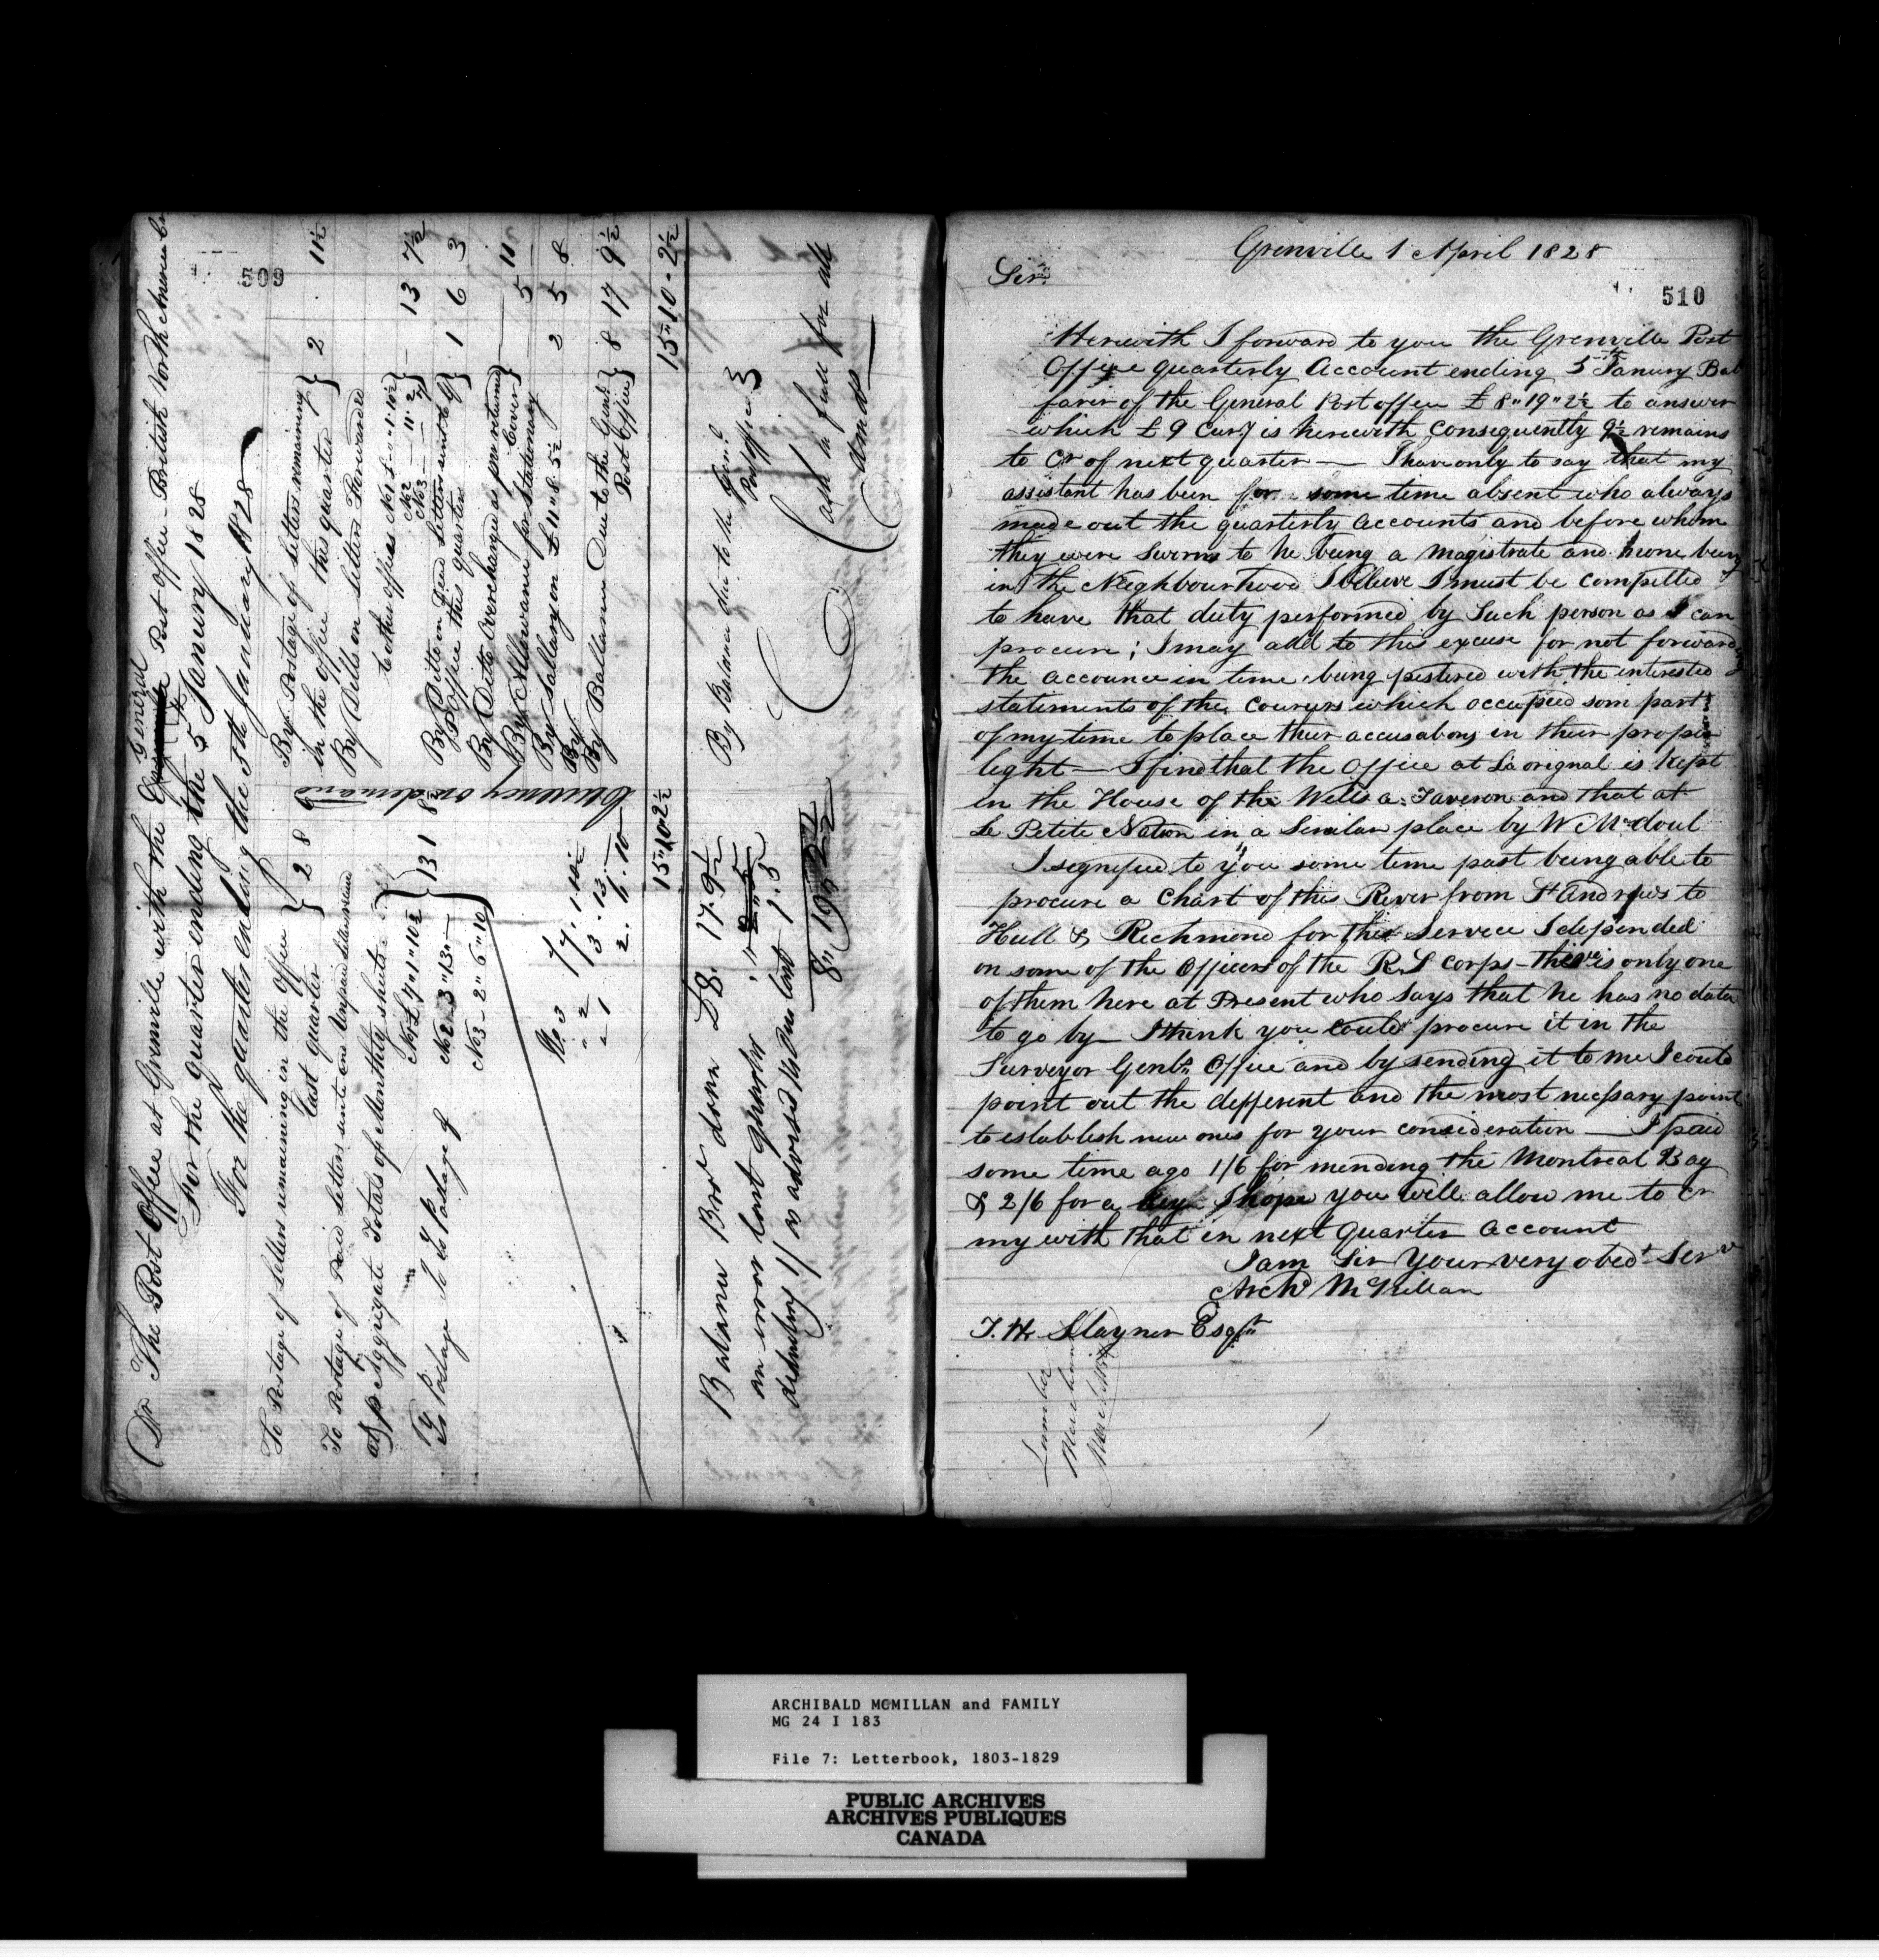 509
Dr The Post Office at Grenville with the General Post office British North America
For the quarter ending the 5th January 1828
For the quarter ending the 5th January 1828
To Postage of Letters remaining in the Office last quarter } 2 8 9
To Postage of Paid Letters sent and Unpaid Letters received
as p Aggregate Totals of Monthly sheets
No 1 £7 " 1 " 10½
No 2 3 " 13 " —
No 3 - 2 " 6 " 10
} 13 1 8½
No 3 £7 . 1 . 10½
" 2 3 . 13 . —
" 1 2 . 6 . 10
15 " 10 " 2½
By Postage of letters remaining in the office this quarter } 2 . 11½
By Bills on Letters Forwarded to other offices No 1 - " 1 " 10½
No 2 — " 11 " 2
No 3 — —
} — 13 7½
By Ditto on Dead Letters sent to G P Office this quarter } 1 6 3
By Ditto Overcharged as per returned Cover } — 5 11
By Allowance for Stationary 5 —
By Sallary on £ 11 " 8 " 5½ 2 5 8
By
By Ballance Due to the Genl Post Office } 8 17 9½
15 " 10 - 2½
Currency on demand
Balance Bro! down £8. 17. 9½
an error last quarter
deducting 1/ as advised 1. 5
8 " 19 " 2½
By Balance due to the Genl Post office }
Cash in full for all
demands —
Grenville 1 April 1828
510
Sir
Herewith I forward to you the Grenville Post
Office quarterly Account ending 5th Janury Bal
faver of the General Post offeu £ 8 " 19 " 2½ to answer
which £ 9 Curry is herewith consequently 9½ remains
to Cr of next quarter — I have only to say that my
assistant has been for some time absent who always
made out the quarterly accounts and before whom
they were sworn to he being a magistrate and none being
in the Neighbourhood I believe I must be compelled
to have that duty performed by Such person as I can
procure ; I may add to this excuse for not forwarding
the account in time being pestered with the interested
statements of the Couriers which occupied som part
of my time to place their accusations in their proper
light — I find that the Office at La orignal is kept
in the House of the Wells a Tavern and that at
Le Petite Nation in a Similar place by W McDoul
I segnified to you some time past being able to
procure a Chart of this River from St Andrews to
Hull & Richmond for this Service I depended
on some of the Officers of the R S corps - there is only one
of them here at Present who says that he has no data
to go by — I think you could procure it in the
Surveyor Genls Office and by sending it to me I could
point out the defferent and the most necessary point
to establish new ones for your consideration — I paid
some time ago 1/6 for mending the Montreal Bag
& 2/6 for a key I hope you will allow me to cr
my with that in next quarter account
I am Sir Your very obedt Serv
Archd McMillan
T. H. Stayner Esqr
ARCHIBALD MCMILLAN and FAMILY
MG 24 I 183
File 7: Letterbook, 1803-1829
PUBLIC ARCHIVES
ARCHIVES PUBLIQUES
CANADA